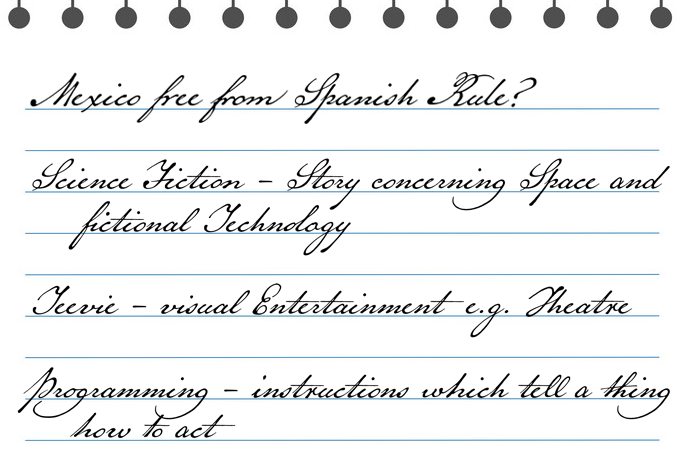 Mexico free from Spanish Rule?
Science Fiction - Story concerning Space and
fictional Technology
Teevie - visual Entertainment e.g. Theatre
Programming - instructions which tell a thing
how to act